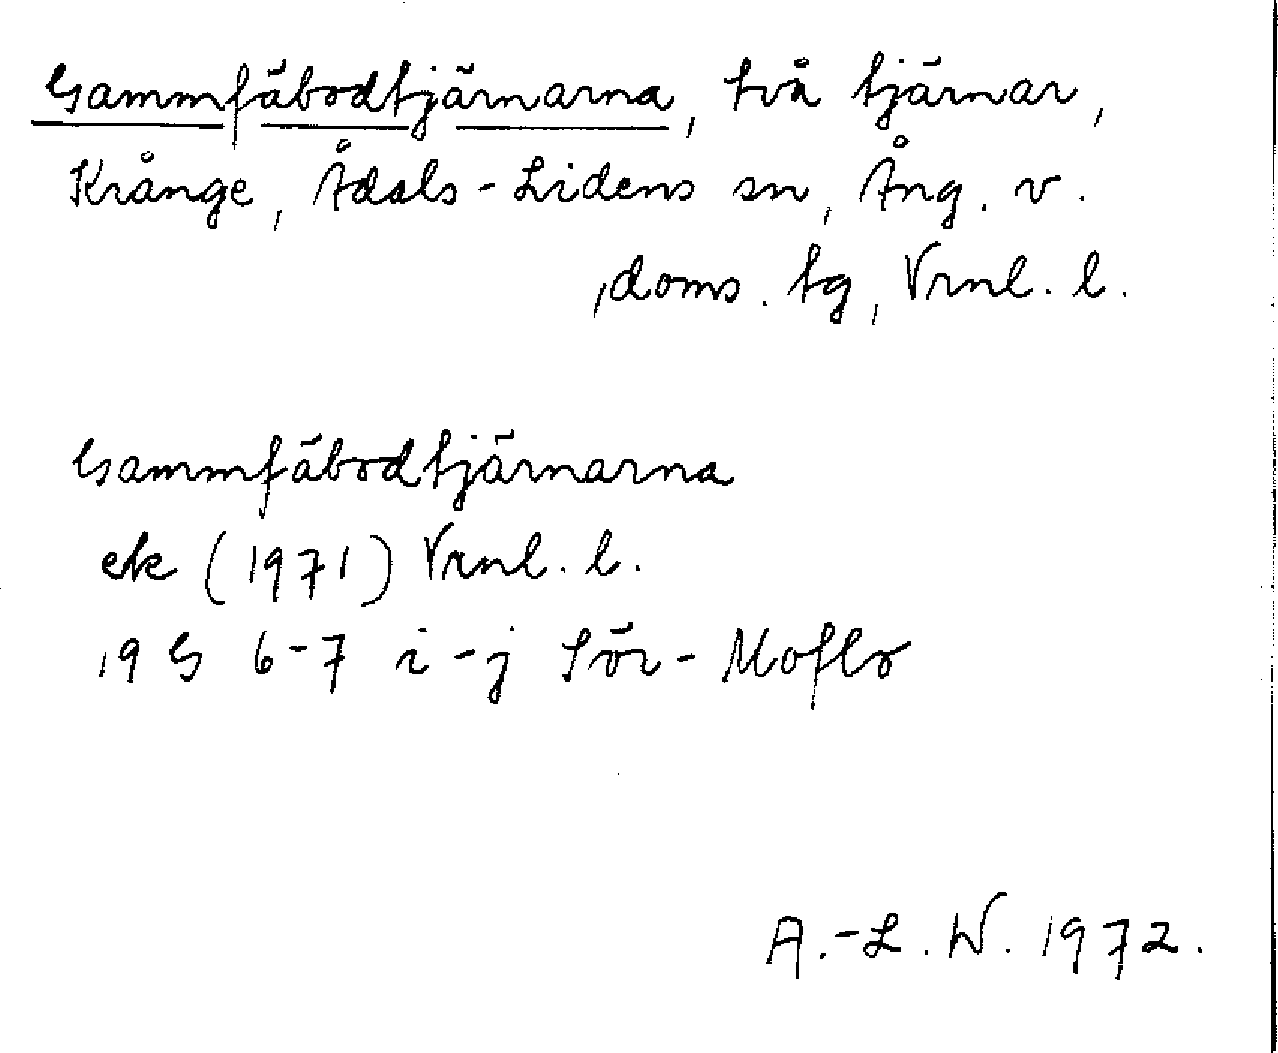 Gammfäbodtjärnarna, två tjärnar,
Krånge, Ådals-Lidens sn, Ång. v.
doms. tg, Vrnl. l.
Gammfäbodtjärnarna
ek (1971) Vrnl. l.
19 G 6-7 i-j Sör-Moflo
A.-L. W. 1972.